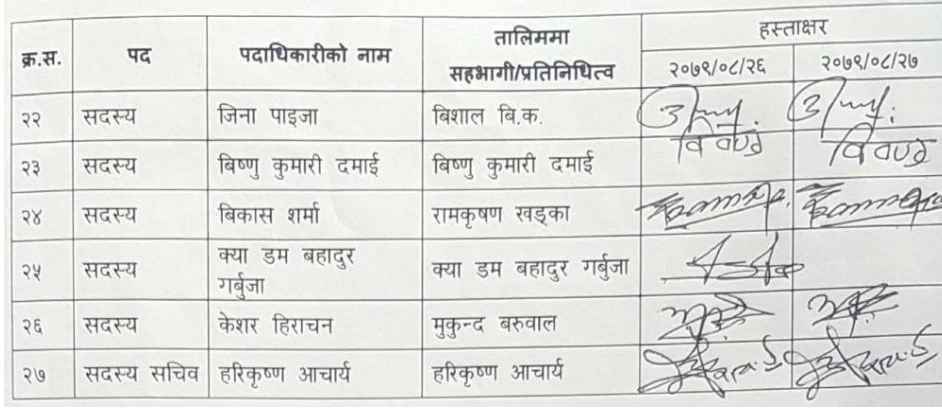 क्र.स. पद पदाधिकारीको नाम तालिममा सहभागी/प्रतिनिधित्व हस्ताक्षर
२०७९/०८/२६ २०७९/०८/२७
२२ सदस्य जिना पाइजा बिशाल बि.क.
२३ सदस्य बिष्णु कुमारी दमाई बिष्णु कुमारी दमाई
२४ सदस्य बिकास शर्मा रामकृषण खड्का
२५ सदस्य क्या डम बहादुर गर्बुजा क्या डम बहादुर गर्बुजा
२६ सदस्य केशर हिराचन मुकुन्द बरुवाल
२७ सदस्य सचिव हरिकृष्ण आचार्य हरिकृष्ण आचार्य